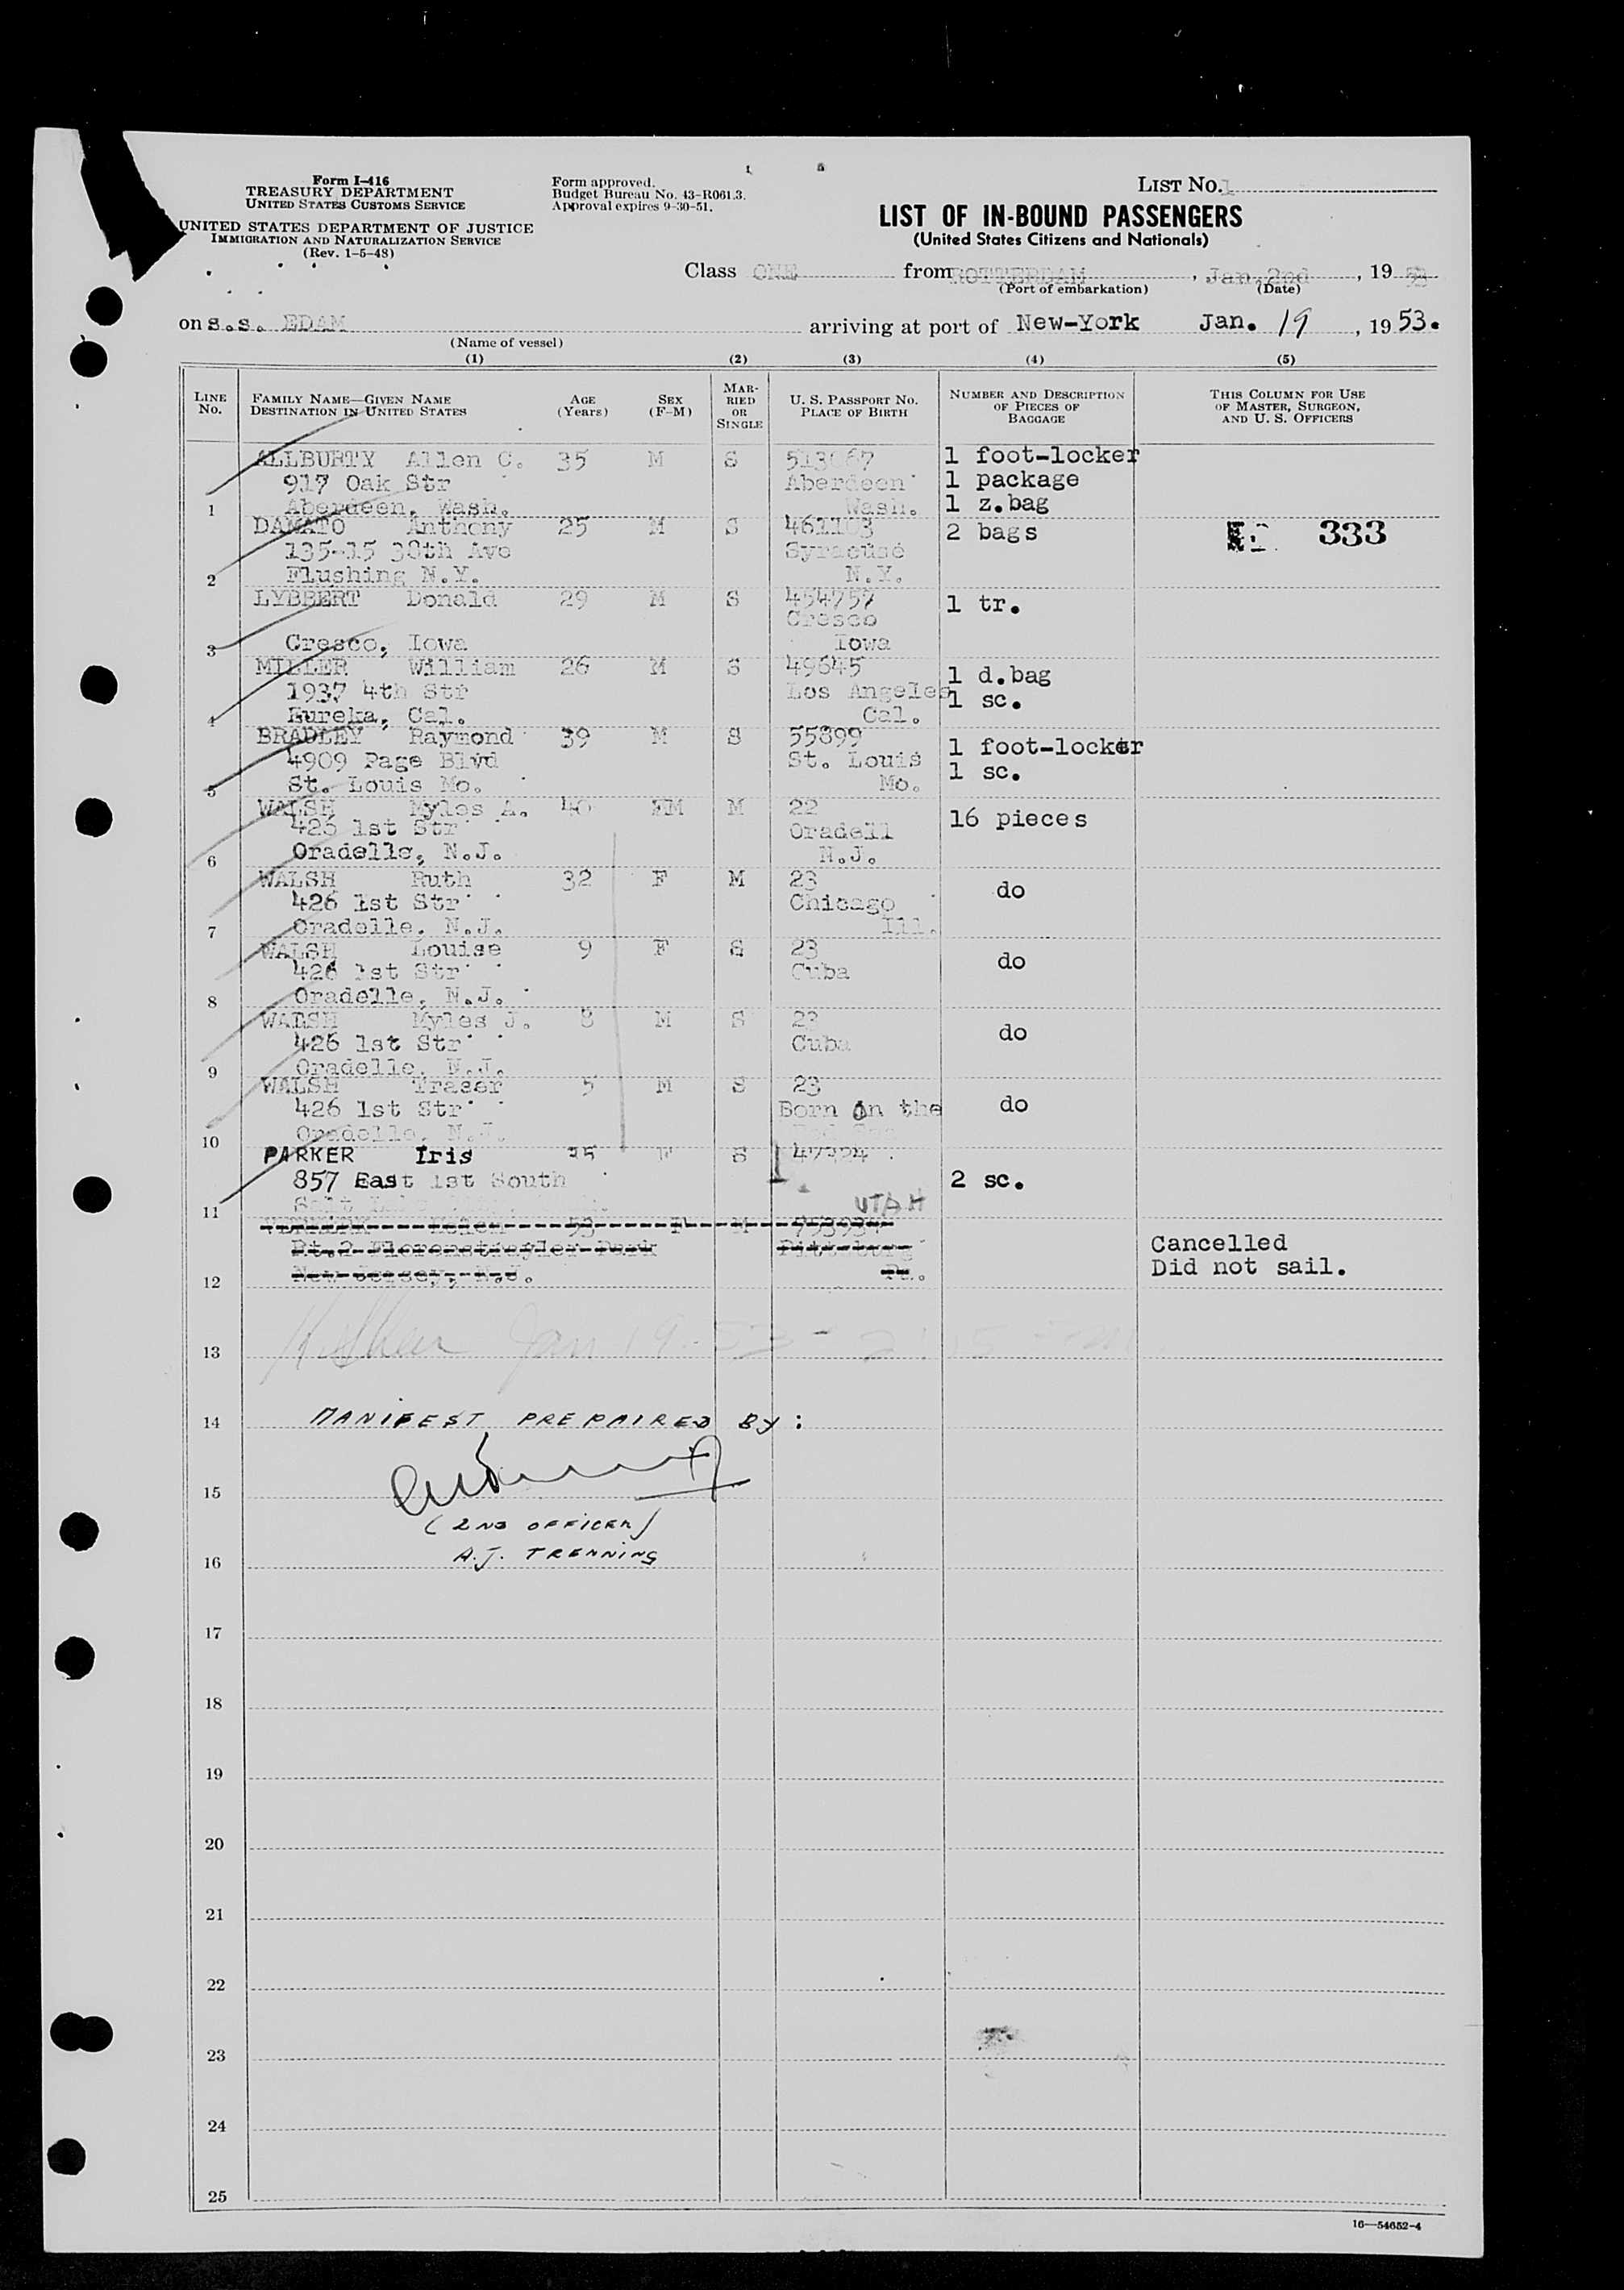 Form I-416
TREASURY DEPARTMENT
UNITED STATES CUSTOMS SERVICE
UNITED STATES DEPARTMENT OF JUSTICE
IMMIGRATION AND NATURALIZATION SERVICE
(Rev. 1-5-48)
Form approved.
Budget Bureau No. 43-R061.3.
Approval expires 9-30-51.
LIST No. 1
LIST OF IN-BOUND PASSENGERS
(United States Citizens and Nationals)
Class ONE from ROTTERDAM, Jan. 2nd, 19 53
(Port of embarkation) (Date)
on s.s. EDAM arriving at port of New-York Jan. 19, 19 53.
(Name of vessel)
(1) (2) (3) (4) (5)
LINE No. FAMILY NAME—GIVEN NAME DESTINATION IN UNITED STATES AGE (Years) SEX (F-M) MARRIED OR SINGLE U. S. PASSPORT No. PLACE OF BIRTH NUMBER AND DESCRIPTION OF PIECES OF BAGGAGE THIS COLUMN FOR USE OF MASTER, SURGEON, AND U. S. OFFICERS
ALLBURTY Allen C. 35 M S 1 foot-locker
917 Oak Str Aberdeen 1 package
1 Aberdeen, Wash. Wash. 1 z.bag
DAMATO Anthony 25 M S 2 bags 333
135-15 38th Ave Syracuse
2 Flushing N.Y. N.Y.
LYBBERT Donald 29 M S 454757 1 tr.
Cresco
3 Cresco, Iowa Iowa
MILLER William 26 M S 49645 1 d.bag
1937 4th Str Los Angeles 1 sc.
4 Eureka, Cal. Cal.
BRADLEY Raymond 39 M S 55899 1 foot-locker
4909 Page Blvd St. Louis 1 sc.
5 St. Louis Mo. Mo.
WALSH Myles A. 40 FM M 22 16 pieces
426 1st Str Oradell
6 Oradelle, N.J. N.J.
WALSH Ruth 32 F M 23 do
426 1st Str Chicago
7 Oradelle, N.J. Ill.
WALSH Louise 9 F S 23 do
426 1st Str Cuba
8 Oradelle, N.J.
WALSH Myles J. 8 M S 23 do
426 1st Str Cuba
9 Oradelle, N.J.
WALSH Traser 5 M S 23 do
426 1st Str Born on the
10 Oradelle, N.J.
PARKER Iris F S
857 East 1st South 2 sc.
11 UTAH
53 F M
Cancelled
12 Did not sail.
13 Jan 19-53
14 MANIFEST PREPAIRED BY:
15
(2ND OFFICER)
16 A.J. TRENNING
17
18
19
20
21
22
23
24
25
16—54652-4